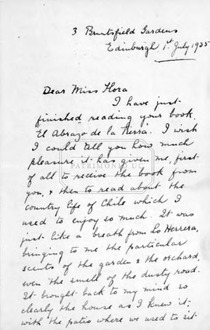 3 Bruntsfield Gardens
Edinburgh 1st July, 1935
Dear Miss Flora
I have just
finished reading your book,
El Abrazo de la Tierra. I wish
I could tell you how much
pleasure it has given me, first
of all to receive the book from
you, & then to read about the
country life of Chile which I
used to enjoy so much. It was
just like a breath from Lo Herrera,
bringing to me the particular
scents of the garden & the orchard,
even the smell of the dusty road.
It brought back to my mind so
clearly the house as I knew it;
with the patio where we used to sit